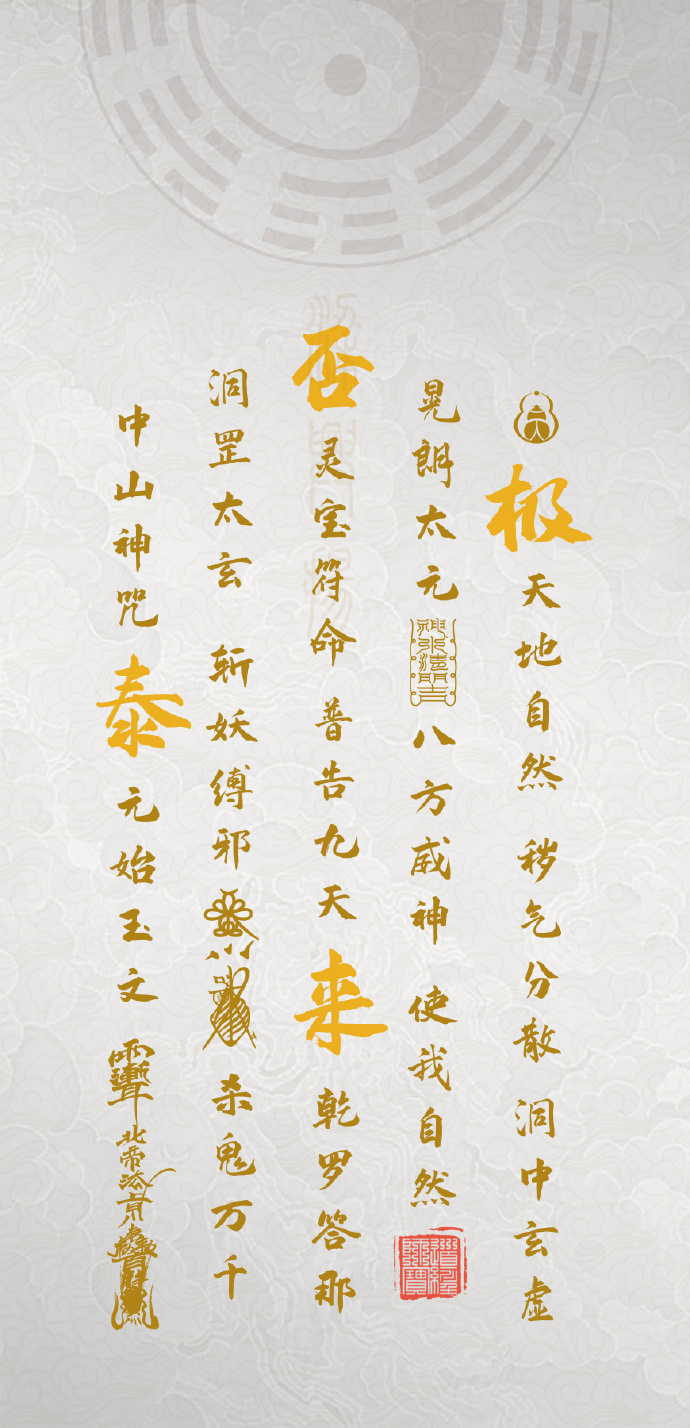 极天地自然 秽气分散 洞中玄虚
晃朗太元 八方威神 使我自然
否灵宝符命 普告九天来 乾罗答那
洞罡太玄 斩妖缚邪 杀鬼万千
中山神咒泰元始玉文